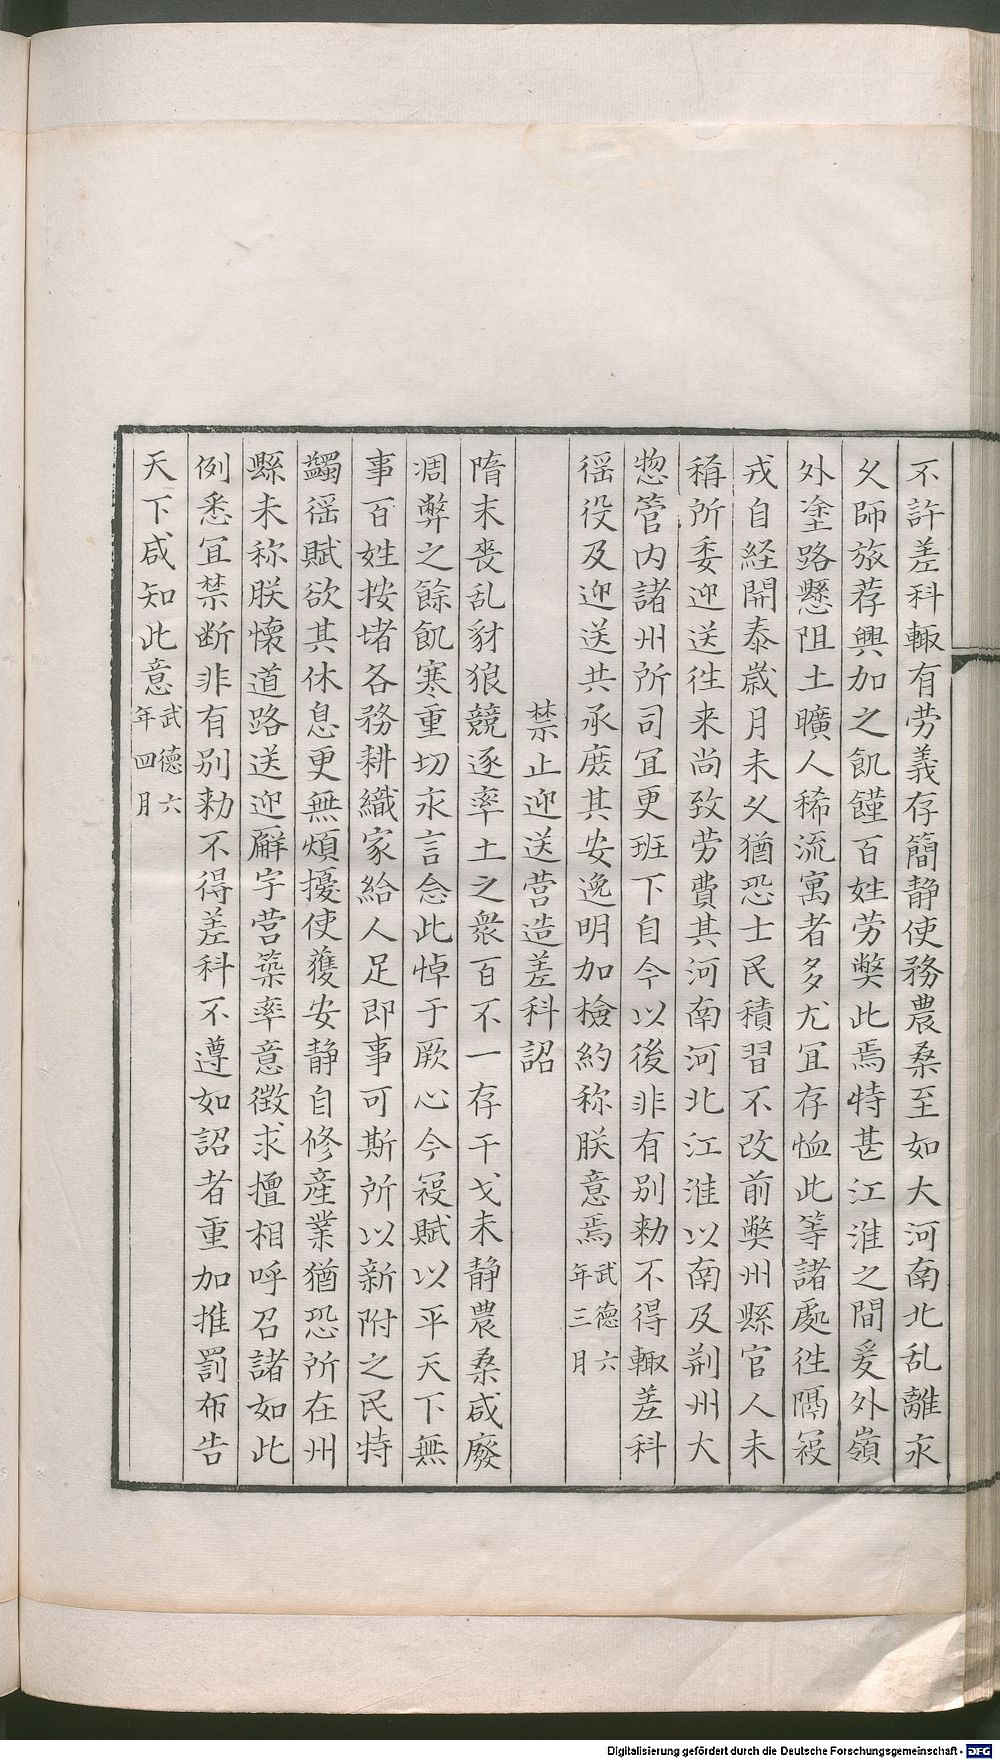 不許差科輙有劳義存簡静使務農桑至如大河南北乱離永
乆師旅荐興加之飢饉百姓劳獘此焉特甚江淮之間爰外嶺
外塗路懸阻土曠人稀流寓者多尤冝存恤此等諸處徃隔冦
戎自経開泰嵗月未乆猶恐士民積習不改前獘州縣官人未
稱所委迎送徃来尚致劳費其河南河北江淮以南及荆州大
惣管内諸州所司冝更班下自今以後非有别勑不得輙差科
徭役及迎送共承庻其安逸明加檢約称朕意焉武德六年三月
禁止迎送营造差科詔
隋末丧乱豺狼競逐率土之衆百不一存干戈未静農桑咸廢
凋弊之餘飢寒重切永言念此悼于厥心今冦賦以平天下無
事百姓按堵各務耕織家給人足即事可斯所以新附之民特
蠲徭賦欲其休息更無煩擾使獲安静自修産業猶恐所在州
縣未称朕懷道路送迎廨宇营築率意徴求擅相呼召諸如此
例悉冝禁断非有别勑不得差科不遵如詔者重加推罰布告
天下咸知此意武德六年四月
Digitalisierung gefördert durch die Deutsche Forschungsgemeinschaft - DFG